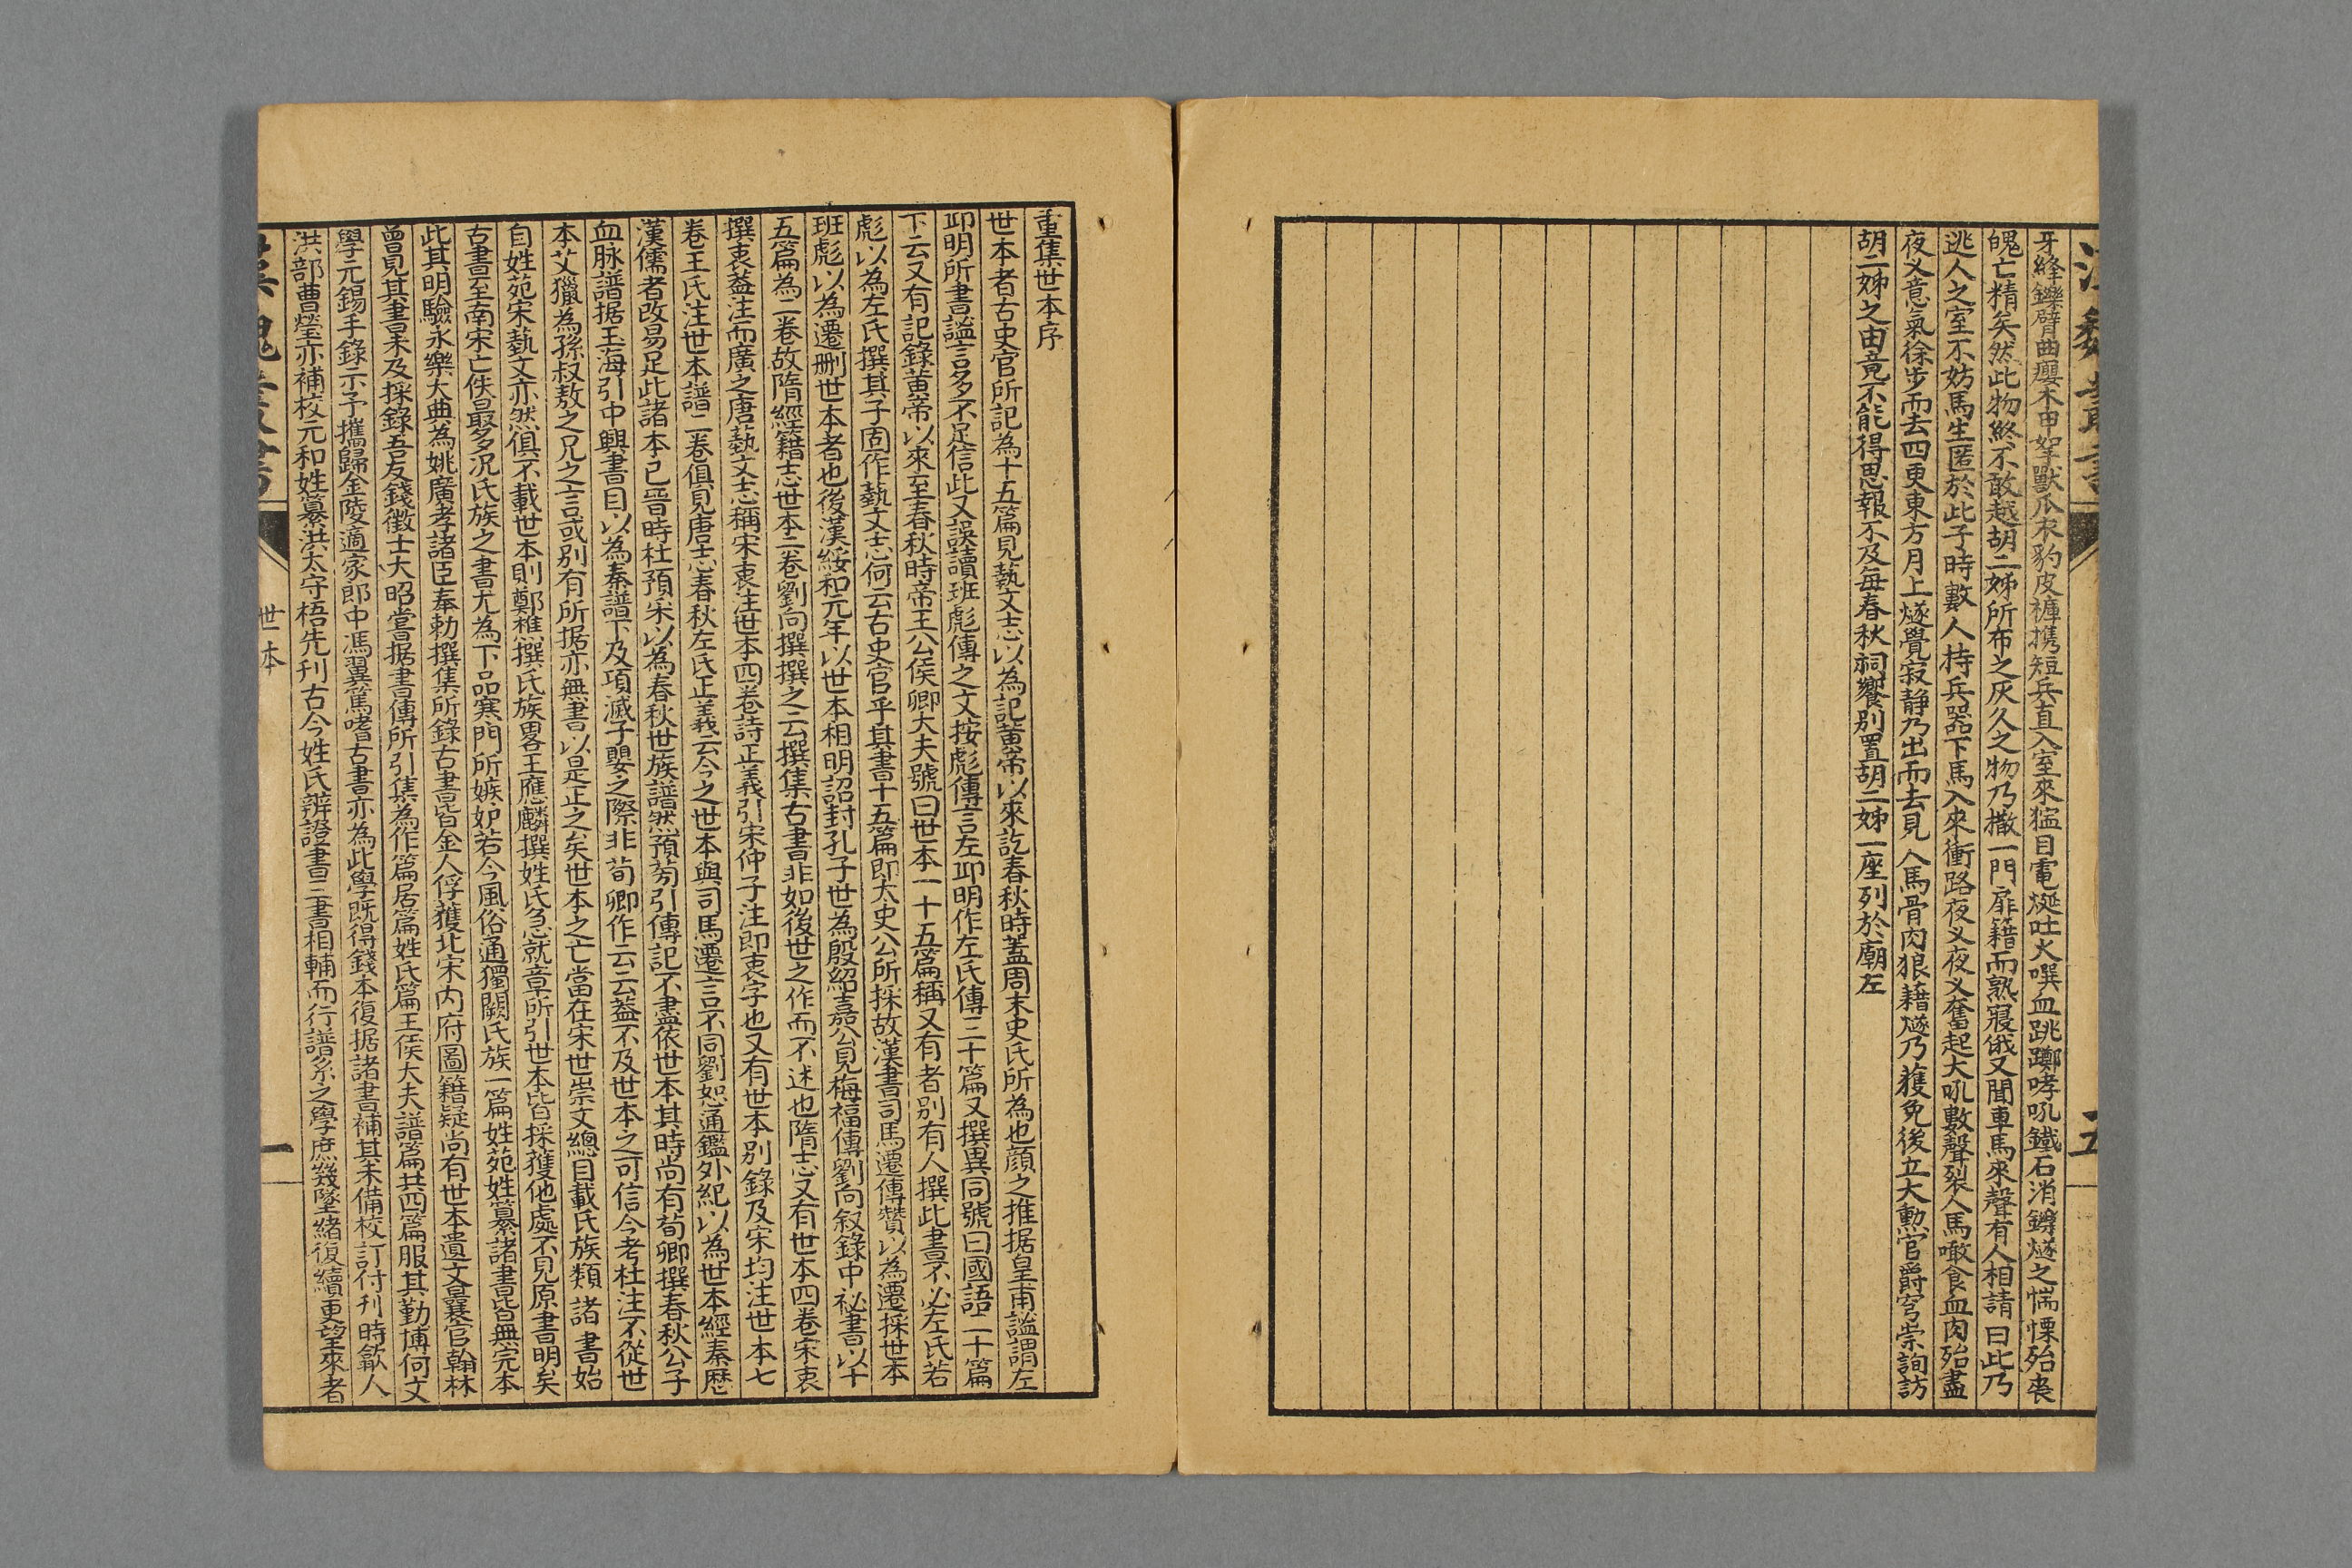 牙縫鑠臂曲癭木甲拏獸爪衣豹皮褲携短兵直入室來猛目電燄吐火噀血跳躑哮吼鐵石消鑠燧之惴慄殆喪
魄亡精矣然此物終不敢越胡二姊所布之灰久之物乃撒一門扉籍而熟寢俄又聞車馬來聲有人相請曰此乃
逃人之室不妨馬生匿於此子時數人持兵器下馬入來衝路夜义夜义奮起大吼數聲裂人馬噉食血肉殆盡
夜义意氣徐步而去四更東方月上燧覺寂靜乃出而去見人馬骨肉狼藉燧乃獲免後立大勲官爵穹崇詢訪
胡二姊之由竟不能得思報不及每春秋祠饗别置胡二姊一座列於廟左
五
重集世本序
世本者古史官所記為十五篇見藝文志以為記黄帝以來訖春秋時蓋周末史氏所為也顔之推据皇甫謐謂左
邱明所書謐言多不足信此又誤讀班彪傳之文按彪傳言左邱明作左氏傳三十篇又撰異同號曰國語二十篇
下云又有記錄黄帝以來至春秋時帝王公侯卿大夫號曰世本一十五篇稱又有者别有人撰此書不必左氏若
彪以為左氏撰其子固作藝文志何云古史官乎其書十五篇即太史公所採故漢書司馬遷傳贊以為遷採世本
班彪以為遷刪世本者也後漢綏和元年以世本相明詔封孔子世為殷紹嘉公見梅福傳劉向叙錄中祕書以十
五篇為二卷故隋經籍志世本二卷劉向撰撰之云撰集古書非如後世之作而不述也隋志又有世本四卷宋衷
撰衷葢注而廣之唐藝文志稱宋衷注世本四卷詩正義引宋仲子注即衷字也又有世本别錄及宋均注世本七
卷王氏注世本譜二卷俱見唐志春秋左氏正義云今之世本與司馬遷言不同劉恕通鑑外紀以為世本經秦歷
漢儒者改易足此諸本已晉時杜預采以為春秋世族譜然預芴引傳記不盡依世本其時尚有荀卿撰春秋公子
血脉譜据玉海引中興書目以為秦譜下及項滅子嬰之際非荀卿作云云葢不及世本之可信今考杜注不從世
本艾獵為孫叔敖之兄之言或别有所据亦無書以是正之矣世本之亡當在宋世崇文總目載氏族類諸書始
自姓苑宋藝文亦然俱不載世本則鄭樵撰氏族畧王應麟撰姓氏急就章所引世本皆採獲他處不見原書明矣
古書至南宋亡佚最多况氏族之書尤為下品寒門所嫉妒若今風俗通獨闕氏族一篇姓苑姓纂諸書皆無完本
此其明驗永樂大典為姚廣孝諸臣奉勅撰集所錄古書皆金人俘獲北宋内府圖籍疑尚有世本遺文曩官翰林
曾見其書未及採錄吾友錢徵士大昭嘗据書傳所引集為作篇居篇姓氏篇王侯大夫譜篇共四篇服其勤博何文
學元錫手錄示予攜歸金陵適家郎中馮翼篤嗜古書亦為此學既得錢本復据諸書補其未備校訂付刊時歙人
洪部曹瑩亦補校元和姓纂洪太守梧先刊古今姓氏辨證書三書相輔而行譜系之學庶幾墜緒復續更望來者
世本
一